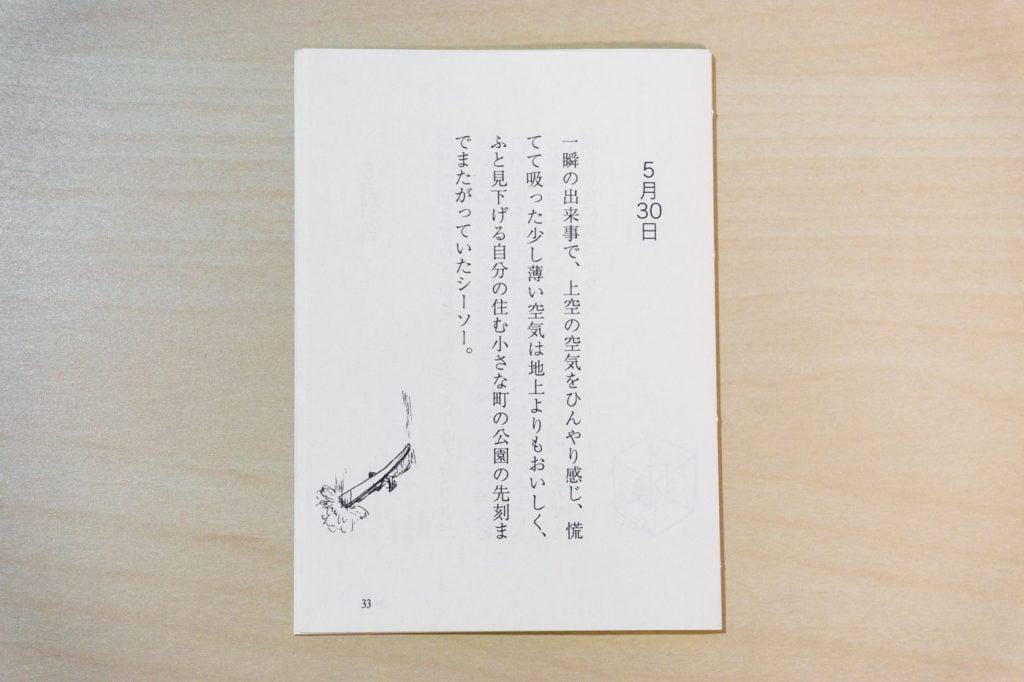 5月30日
一瞬の出来事で、上空の空気をひんやり感じ、慌
てて吸った少し薄い空気は地上よりもおいしく、
ふと見下げる自分の住む小さな町の公園の先刻ま
でまたがっていたシーソー。
33